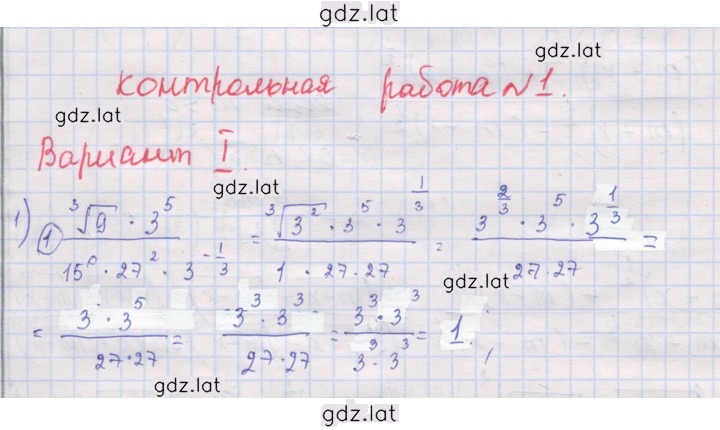 gdz.lat
gdz.lat
контрольная работа №1.
gdz.lat
Вариант I.
gdz.lat
1) ① (∛9 · 3^5) / (15^0 · 27^2 · 3^(-1/3)) = (∛(3^2) · 3^5 · 3^(1/3)) / (1 · 27 · 27) = (3^(2/3) · 3^5 · 3^(1/3)) / (27 · 27) =
gdz.lat
= (3 · 3^5) / (27 · 27) = (3^3 · 3^3) / (27 · 27) = (3^3 · 3^3) / (3^3 · 3^3) = 1. ;
gdz.lat
gdz.lat